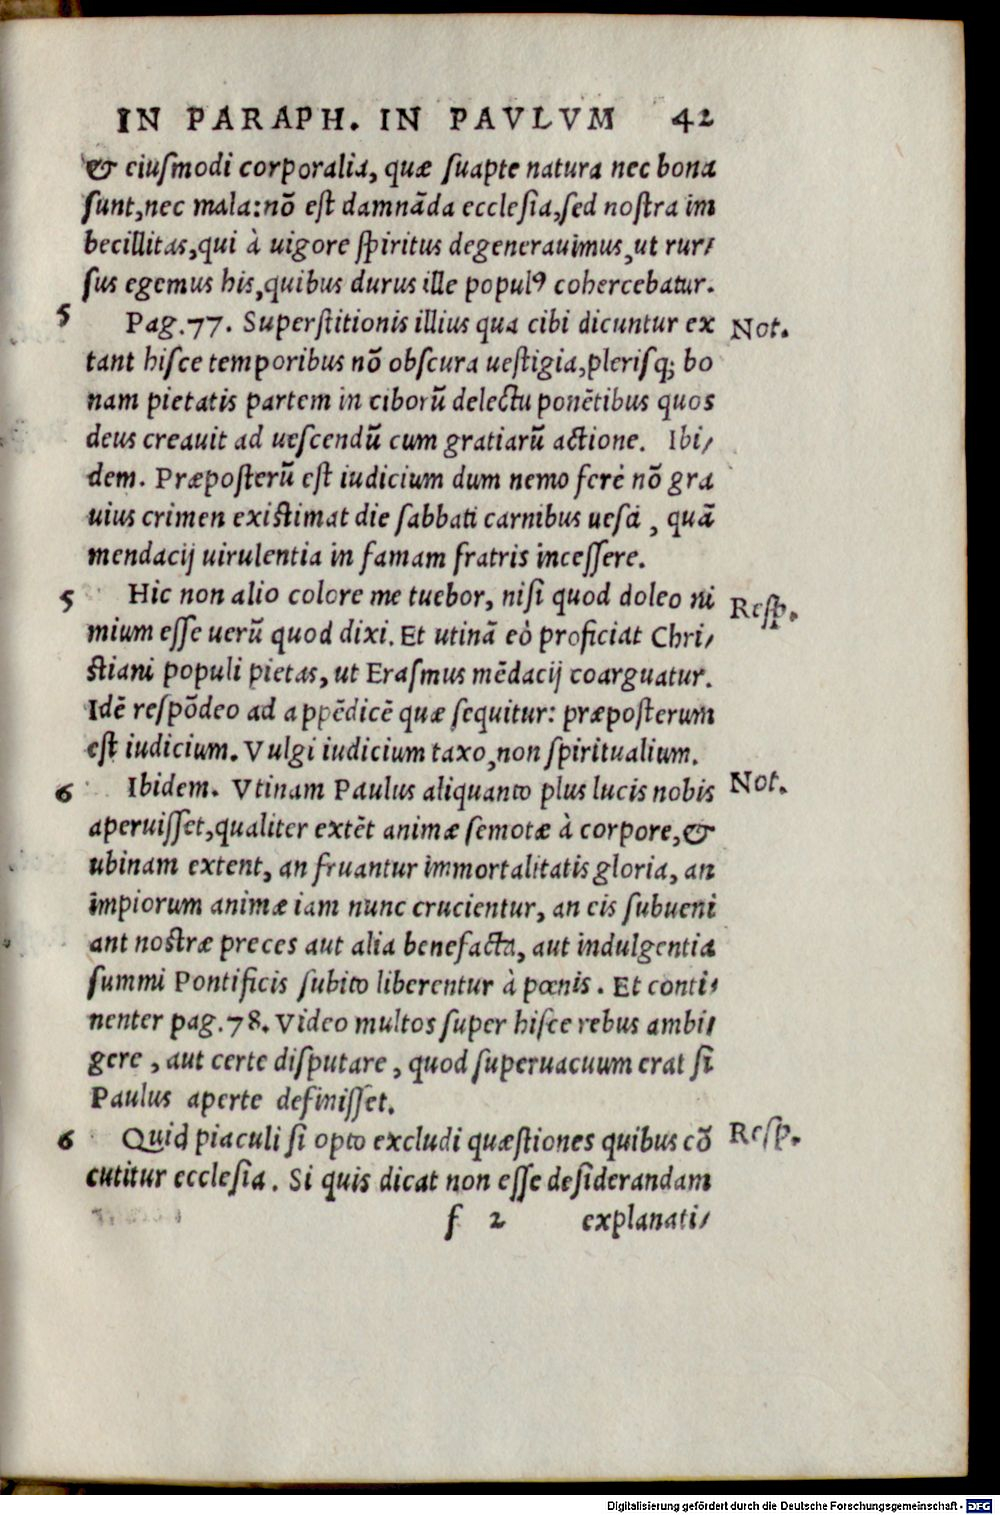 IN PARAPH. IN PAVLVM 42
& eiuſmodi corporalia, quæ ſuapte natura nec bona
ſunt, nec mala: nõ eſt damnãda eccleſia, ſed noſtra im
becillitas, qui à uigore ſpiritus degenerauimus, ut rur/
ſus egemus his, quibus durus ille populꝰ cohercebatur.
5 Pag. 77. Superſtitionis illius qua cibi dicuntur ex Not.
tant hiſce temporibus nõ obſcura ueſtigia, pleriſq; bo
nam pietatis partem in ciborũ delectu ponẽtibus quos
deus creauit ad ueſcendũ cum gratiarũ actione. Ibi/
dem. Præpoſterũ eſt iudicium dum nemo ferè nõ gra
uius crimen exiſtimat die ſabbati carnibus ueſci, quã
mendacij uirulentia in famam fratris inceſſere.
5 Hic non alio colore me tuebor, niſi quod doleo ni Reſp.
mium eſſe uerũ quod dixi. Et utinã eò proficiat Chri/
ſtiani populi pietas, ut Eraſmus mẽdacij coarguatur.
Idẽ reſpõdeo ad appẽdicẽ quæ ſequitur: præpoſterum
eſt iudicium. Vulgi iudicium taxo, non ſpiritualium.
6 Ibidem. Vtinam Paulus aliquanto plus lucis nobis Not.
aperuiſſet, qualiter extẽt animæ ſemotæ à corpore, &
ubinam extent, an fruantur immortalitatis gloria, an
impiorum animæ iam nunc crucientur, an eis ſubueni
ant noſtræ preces aut alia benefacta, aut indulgentia
ſummi Pontificis ſubito liberentur à pœnis. Et conti/
nenter pag. 78. Video multos ſuper hiſce rebus ambi/
gere, aut certe diſputare, quod ſuperuacuum erat ſi
Paulus aperte definiſſet.
6 Quid piaculi ſi opto excludi quæſtiones quibus cõ Reſp.
cutitur eccleſia. Si quis dicat non eſſe deſiderandam
f 2 explanati/
Digitalisierung gefördert durch die Deutsche Forschungsgemeinschaft - DFG